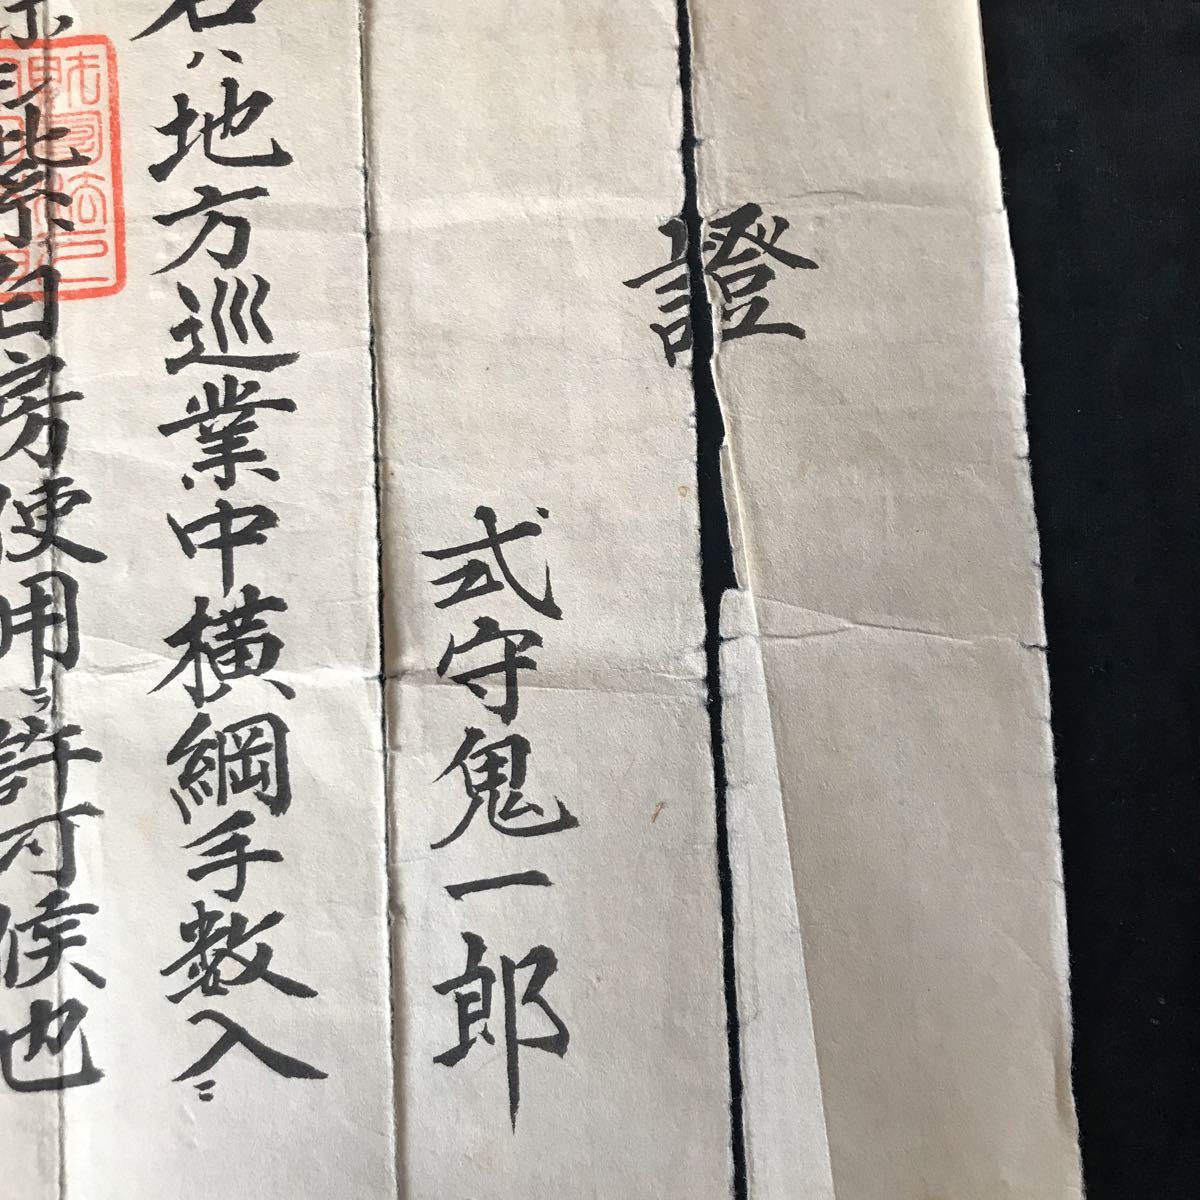 證
式守鬼一郎
右ハ地方巡業中横綱手数入ニ
際シ紫白房使用ヲ許可候也